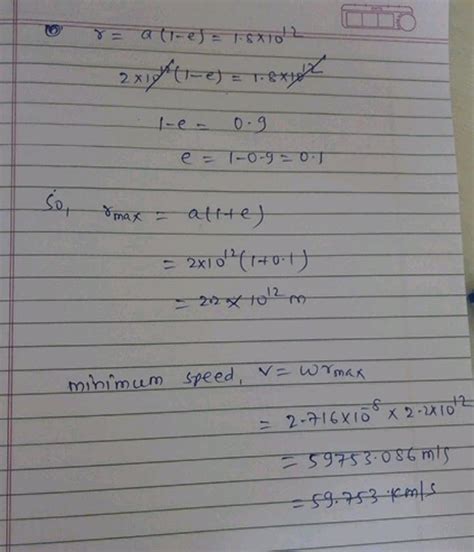 r = a(1-e) = 1.8×10¹²
2×10¹²(1-e) = 1.8×10¹²
1-e = 0.9
e = 1-0.9 = 0.1
So, rmax = a(1+e)
= 2×10¹²(1+0.1)
= 2.2 × 10¹² m
minimum speed, v = wrmax
= 2.716×10⁻⁸ × 2.2×10¹²
= 59753.086 m/s
= 59.753 km/s